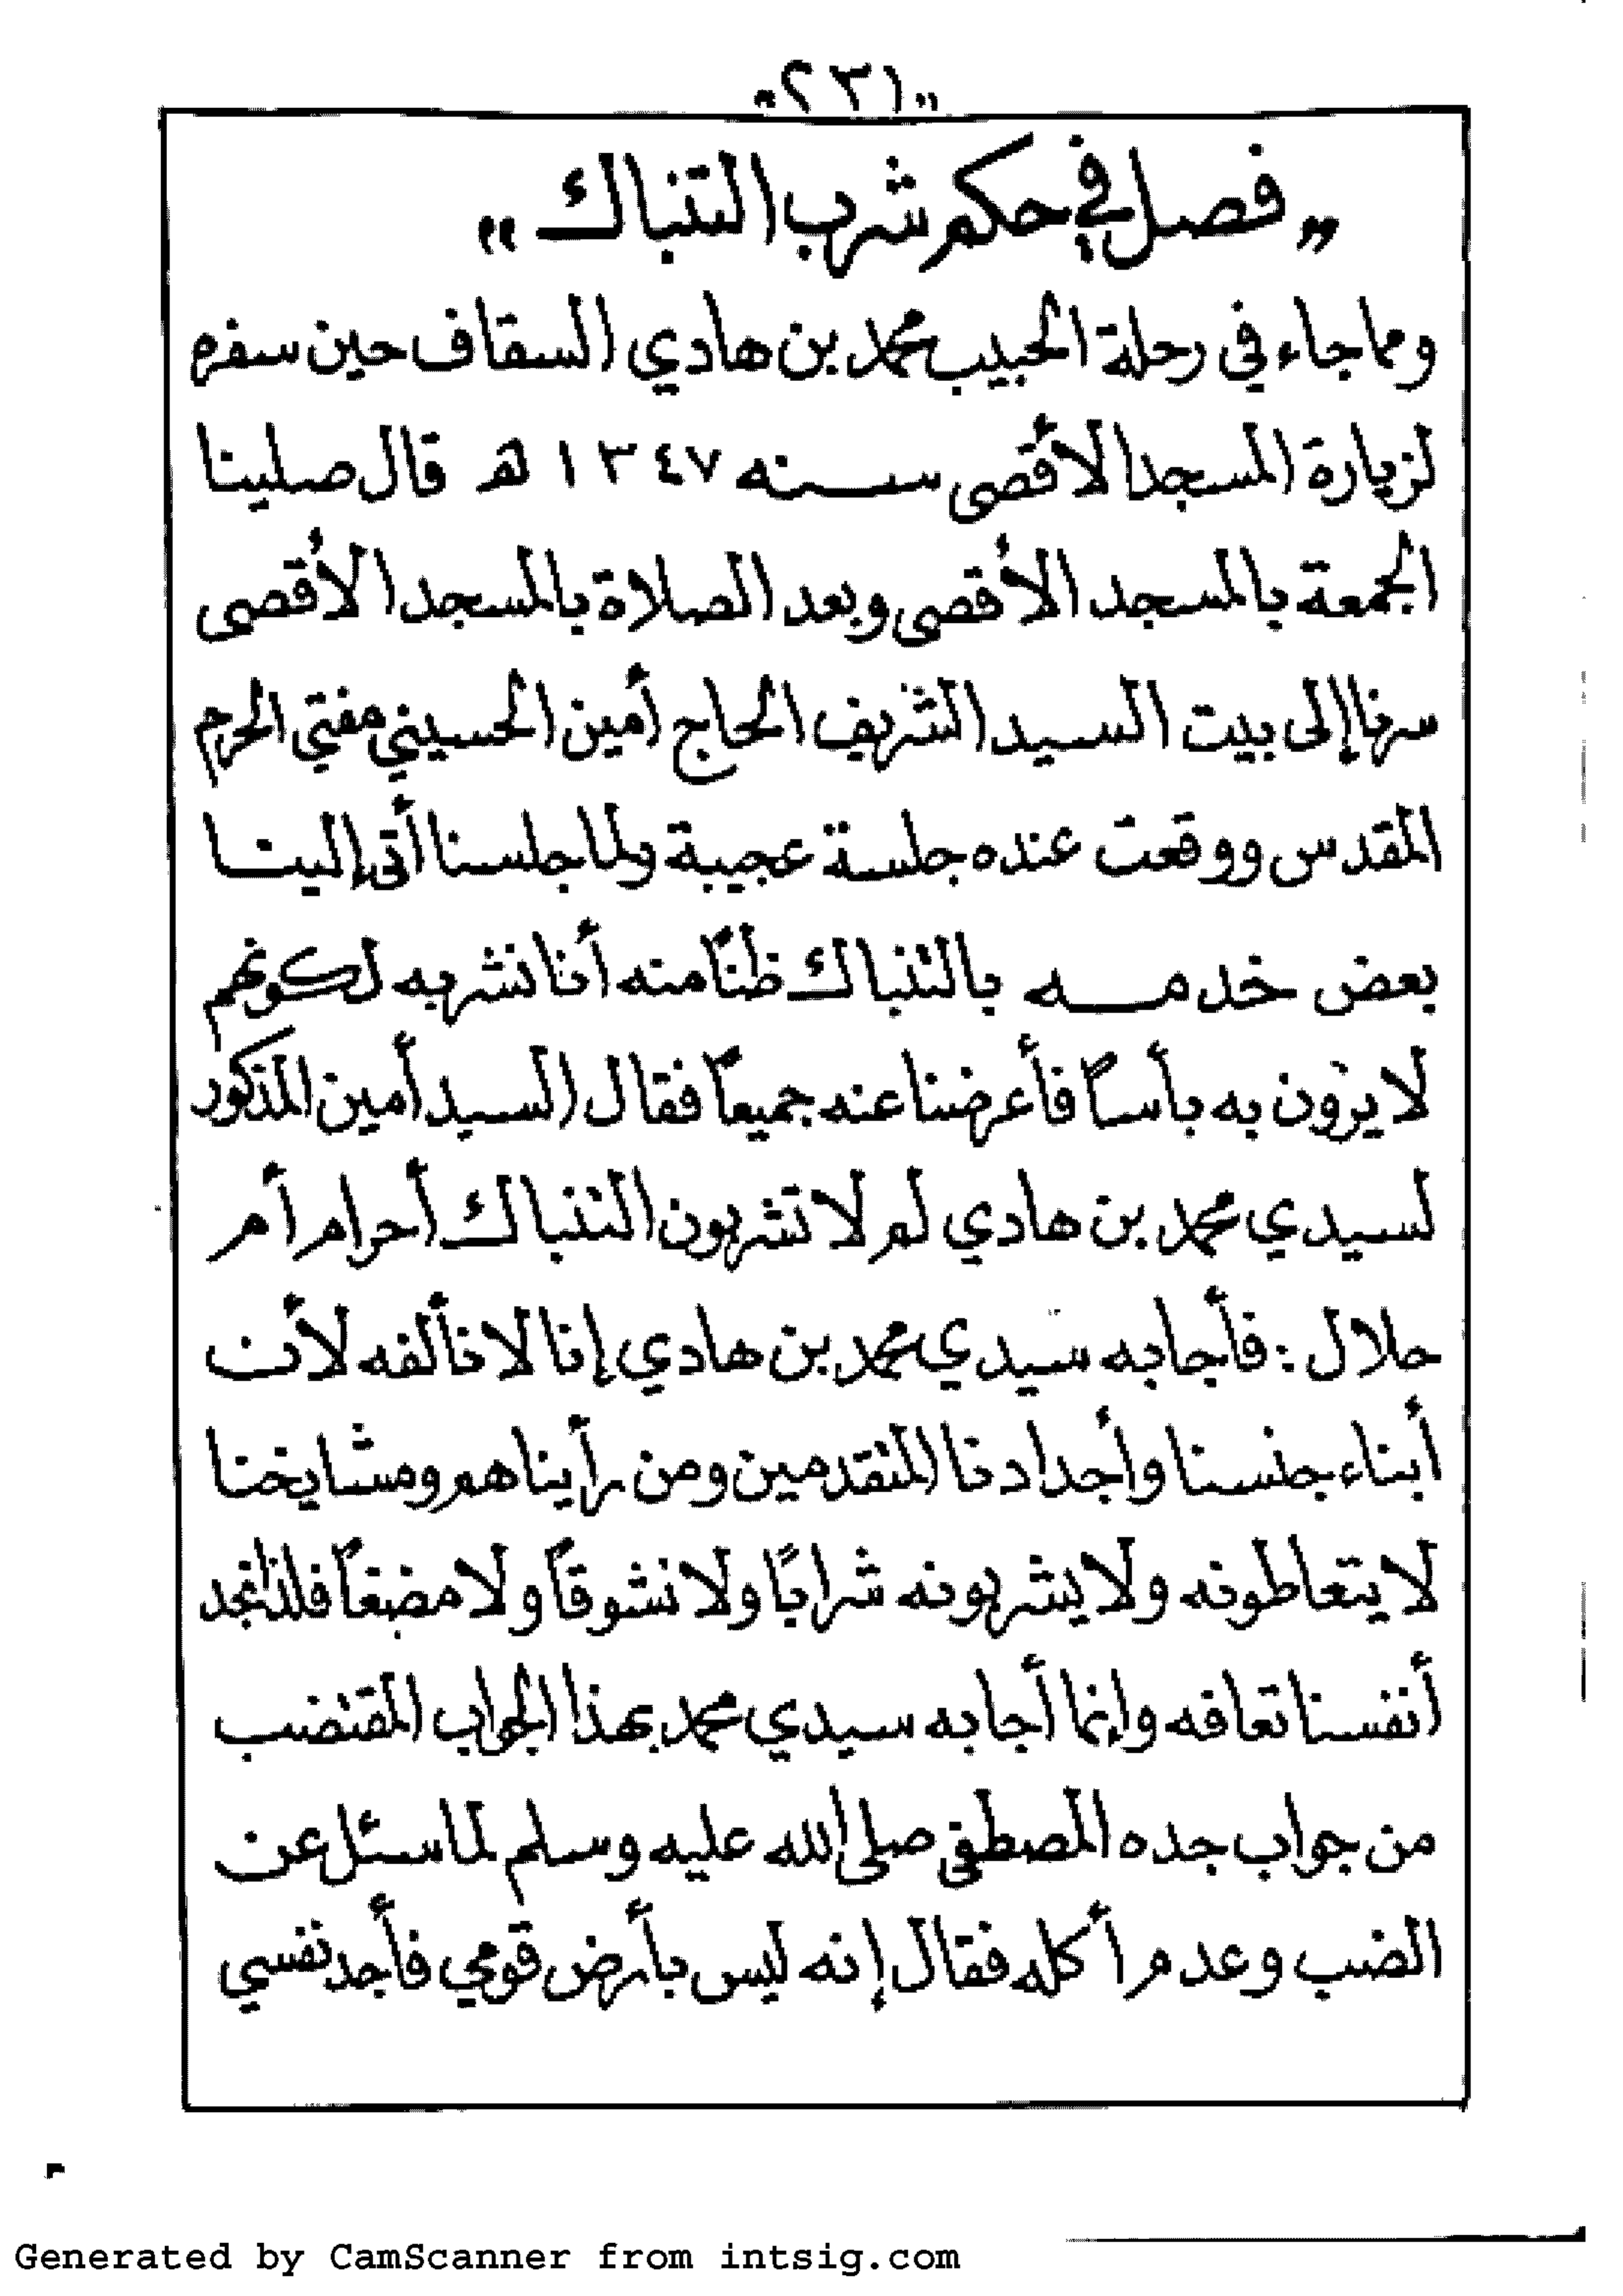 "٢٣١"
„ فصل في حكم شرب التنباك "
ومما جاء في رحلة الحبيب محمد بن هادي السقاف حين سفره
لزيارة المسجد الأقصى سنه ١٣٤٧ هـ قال صلينا
الجمعة بالمسجد الأقصى وبعد الصلاة بالمسجد الأقصى
سرنا إلى بيت السيد الشريف الحاج أمين الحسيني مفتي الحرم
المقدس ووقعت عنده جلسة عجيبة ولما جلسنا أتى إلينا
بعض خدمه بالتنباك ظنًا منه أنا نشربه لكونهم
لا يرَون به بأسًا فأعرضنا عنه جميعًا فقال السيد أمين المذكور
لسيدي محمد بن هادي لم لا تشربون التنباك أحرام أم
حلال : فأجابه سيدي محمد بن هادي إنا لا نألفه لأن
أبناء جنسنا وأجدادنا المتقدمين ومن رأيناهم ومشايخنا
لا يتعاطونه ولا يشربونه شرابًا ولا نشوقًا ولا مضغًا فلذا نجد
أنفسنا تعافه وإنما أجابه سيدي محمد بهذا الجواب المقتضب
من جواب جده المصطفى صلى الله عليه وسلم لما سئل عن
الضب وعدم أكله فقال إنه ليس بأرض قومي فأجد نفسي
Generated by CamScanner from intsig.com